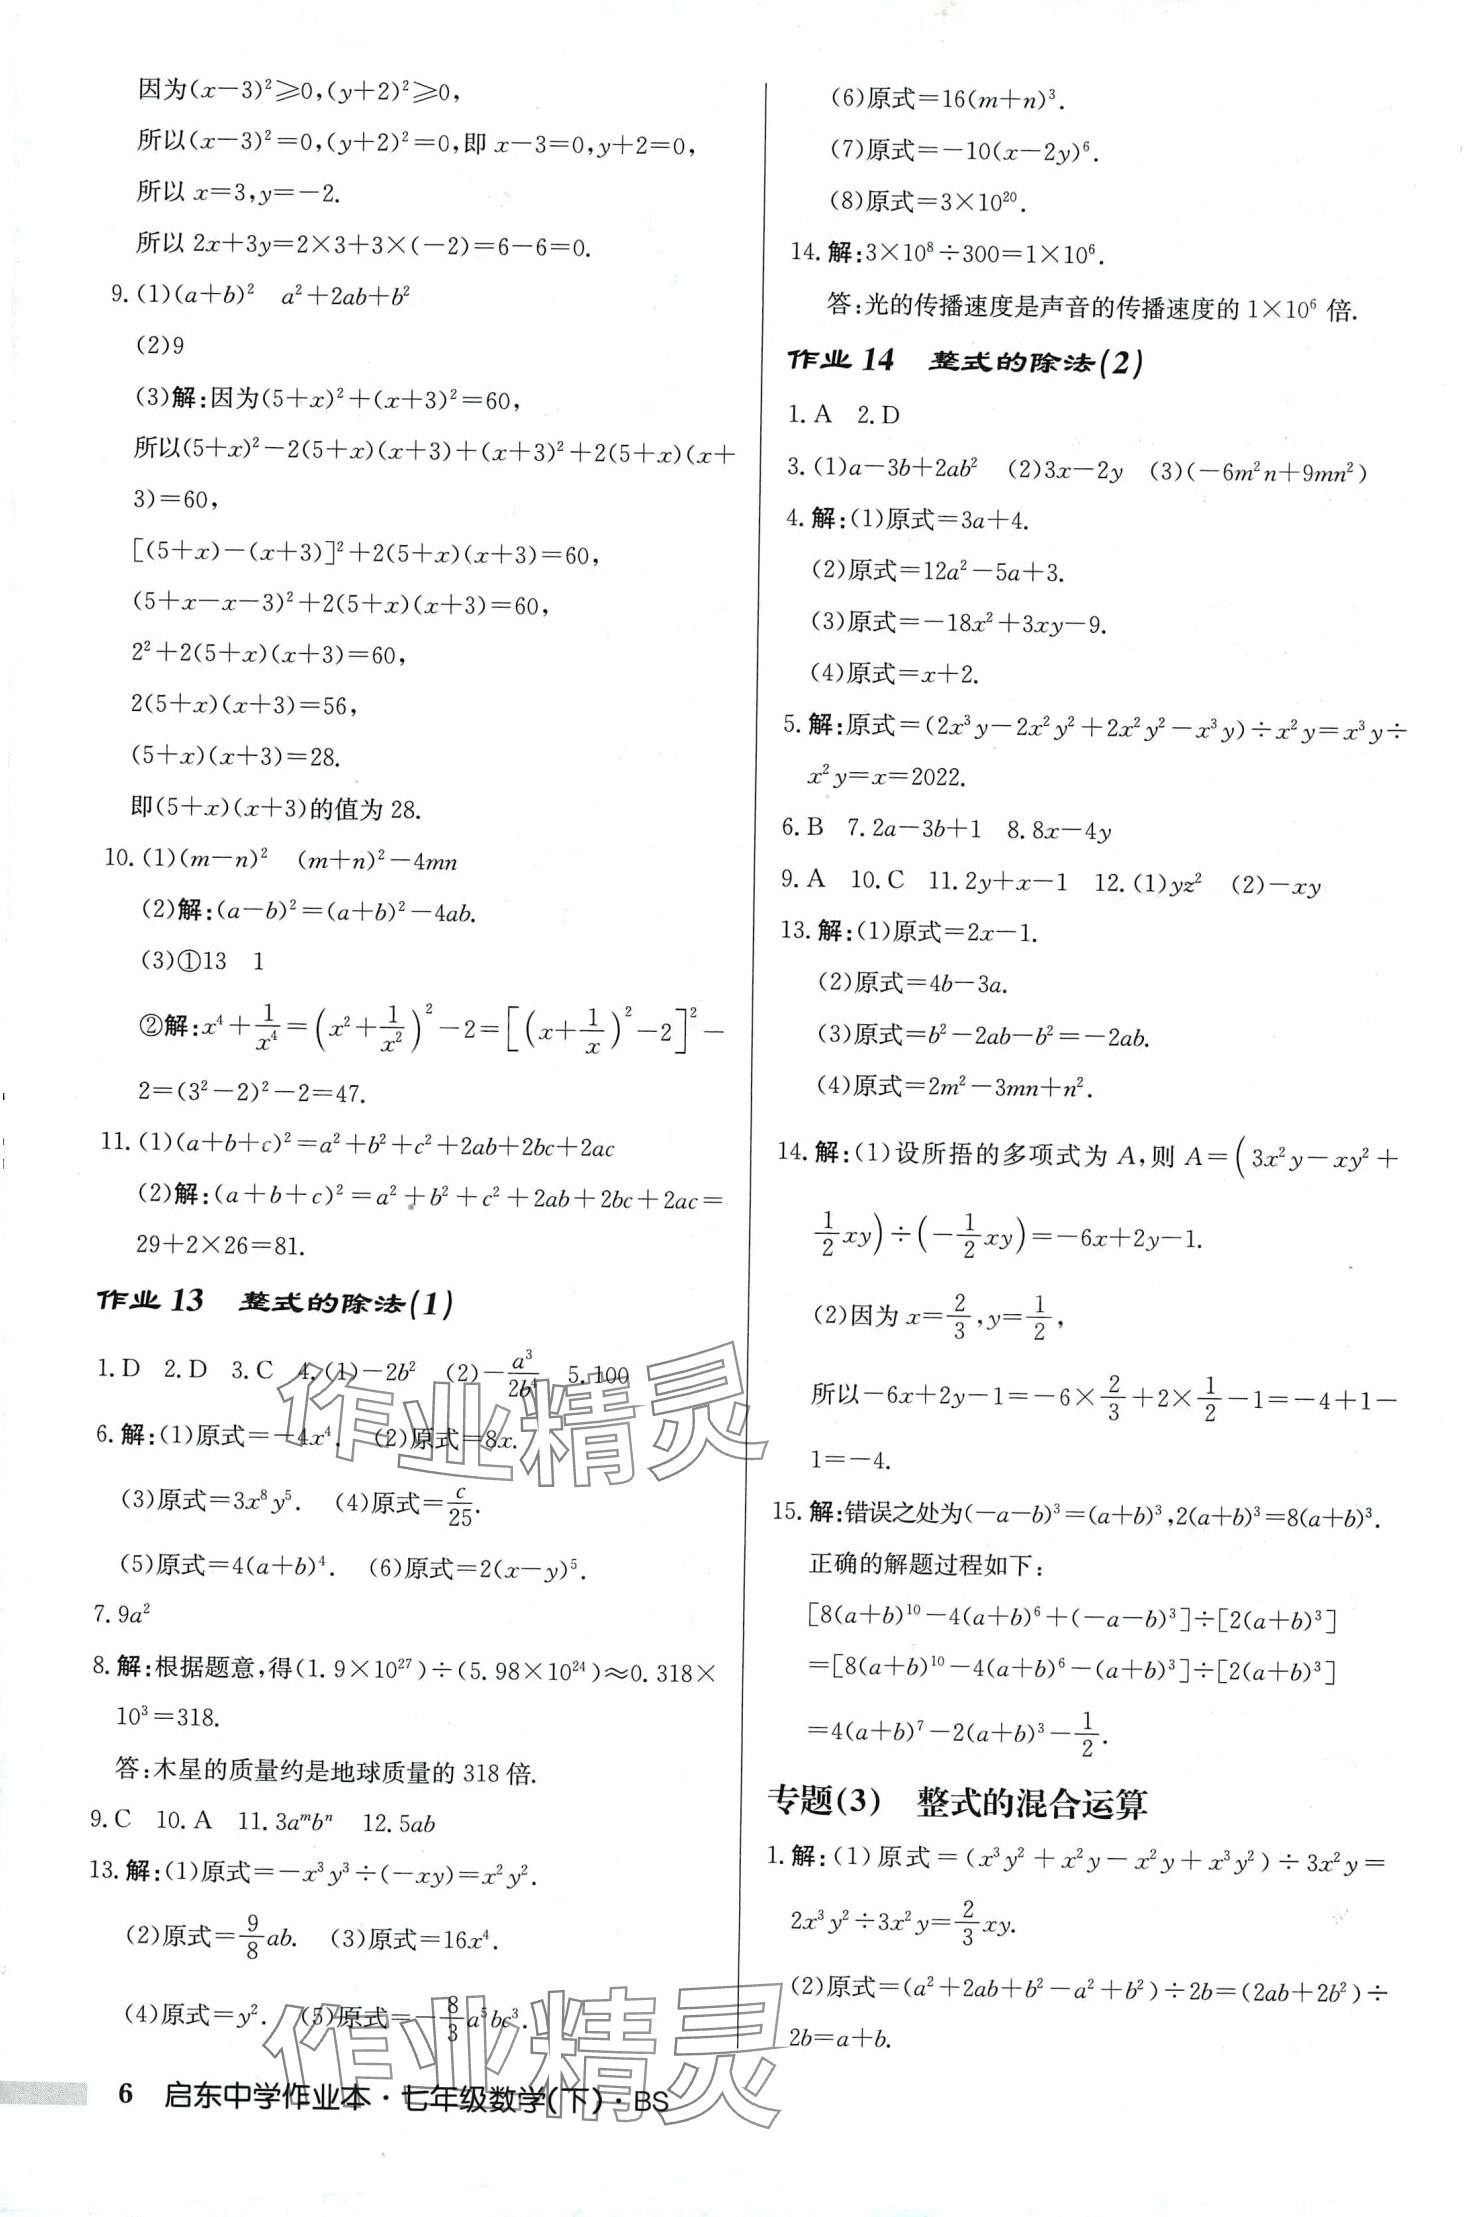 因为(x－3)²≥0,(y＋2)²≥0,
所以(x－3)²＝0,(y＋2)²＝0,即 x－3＝0,y＋2＝0,
所以 x＝3,y＝－2.
所以 2x＋3y＝2×3＋3×(－2)＝6－6＝0.
9. (1)(a＋b)²　a²＋2ab＋b²
(2)9
(3)解:因为(5＋x)²＋(x＋3)²＝60,
所以(5＋x)²－2(5＋x)(x＋3)＋(x＋3)²＋2(5＋x)(x＋
3)＝60,
[(5＋x)－(x＋3)]²＋2(5＋x)(x＋3)＝60,
(5＋x－x－3)²＋2(5＋x)(x＋3)＝60,
2²＋2(5＋x)(x＋3)＝60,
2(5＋x)(x＋3)＝56,
(5＋x)(x＋3)＝28.
即(5＋x)(x＋3)的值为 28.
10. (1)(m－n)²　(m＋n)²－4mn
(2)解:(a－b)²＝(a＋b)²－4ab.
(3)①13　1
②解:x⁴＋1/x⁴＝(x²＋1/x²)²－2＝[(x＋1/x)²－2]²－
2＝(3²－2)²－2＝47.
11. (1)(a＋b＋c)²＝a²＋b²＋c²＋2ab＋2bc＋2ac
(2)解:(a＋b＋c)²＝a²＋b²＋c²＋2ab＋2bc＋2ac＝
29＋2×26＝81.
作业 13　整式的除法(1)
1. D　2. D　3. C　4. (1)－2b²　(2)－a³/2b⁴　5. 100
6. 解:(1)原式＝－4x⁴.　(2)原式＝8x.
(3)原式＝3x⁸y⁵.　(4)原式＝c/25.
(5)原式＝4(a＋b)⁴.　(6)原式＝2(x－y)⁵.
7. 9a²
8. 解:根据题意,得(1.9×10²⁷)÷(5.98×10²⁴)≈0.318×
10³＝318.
答:木星的质量约是地球质量的 318 倍.
9. C　10. A　11. 3aᵐbⁿ　12. 5ab
13. 解:(1)原式＝－x³y³÷(－xy)＝x²y².
(2)原式＝9/8ab.　(3)原式＝16x⁴.
(4)原式＝y².　(5)原式＝－8/3a⁵bc³.
6　启东中学作业本·七年级数学(下)·BS
(6)原式＝16(m＋n)³.
(7)原式＝－10(x－2y)⁶.
(8)原式＝3×10²⁰.
14. 解:3×10⁸÷300＝1×10⁶.
答:光的传播速度是声音的传播速度的 1×10⁶ 倍.
作业 14　整式的除法(2)
1. A　2. D
3. (1)a－3b＋2ab²　(2)3x－2y　(3)(－6m²n＋9mn²)
4. 解:(1)原式＝3a＋4.
(2)原式＝12a²－5a＋3.
(3)原式＝－18x²＋3xy－9.
(4)原式＝x＋2.
5. 解:原式＝(2x³y－2x²y²＋2x²y²－x³y)÷x²y＝x³y÷
x²y＝x＝2022.
6. B　7. 2a－3b＋1　8. 8x－4y
9. A　10. C　11. 2y＋x－1　12. (1)yz²　(2)－xy
13. 解:(1)原式＝2x－1.
(2)原式＝4b－3a.
(3)原式＝b²－2ab－b²＝－2ab.
(4)原式＝2m²－3mn＋n².
14. 解:(1)设所捂的多项式为 A,则 A＝(3x²y－xy²＋
1/2xy)÷(－1/2xy)＝－6x＋2y－1.
(2)因为 x＝2/3,y＝1/2,
所以－6x＋2y－1＝－6×2/3＋2×1/2－1＝－4＋1－
1＝－4.
15. 解:错误之处为(－a－b)³＝(a＋b)³,2(a＋b)³＝8(a＋b)³.
正确的解题过程如下:
[8(a＋b)¹⁰－4(a＋b)⁶＋(－a－b)³]÷[2(a＋b)³]
＝[8(a＋b)¹⁰－4(a＋b)⁶－(a＋b)³]÷[2(a＋b)³]
＝4(a＋b)⁷－2(a＋b)³－1/2.
专题(3)　整式的混合运算
1. 解:(1)原式＝(x³y²＋x²y－x²y＋x³y²)÷3x²y＝
2x³y²÷3x²y＝2/3xy.
(2)原式＝(a²＋2ab＋b²－a²＋b²)÷2b＝(2ab＋2b²)÷
2b＝a＋b.
作业精灵
作业精灵